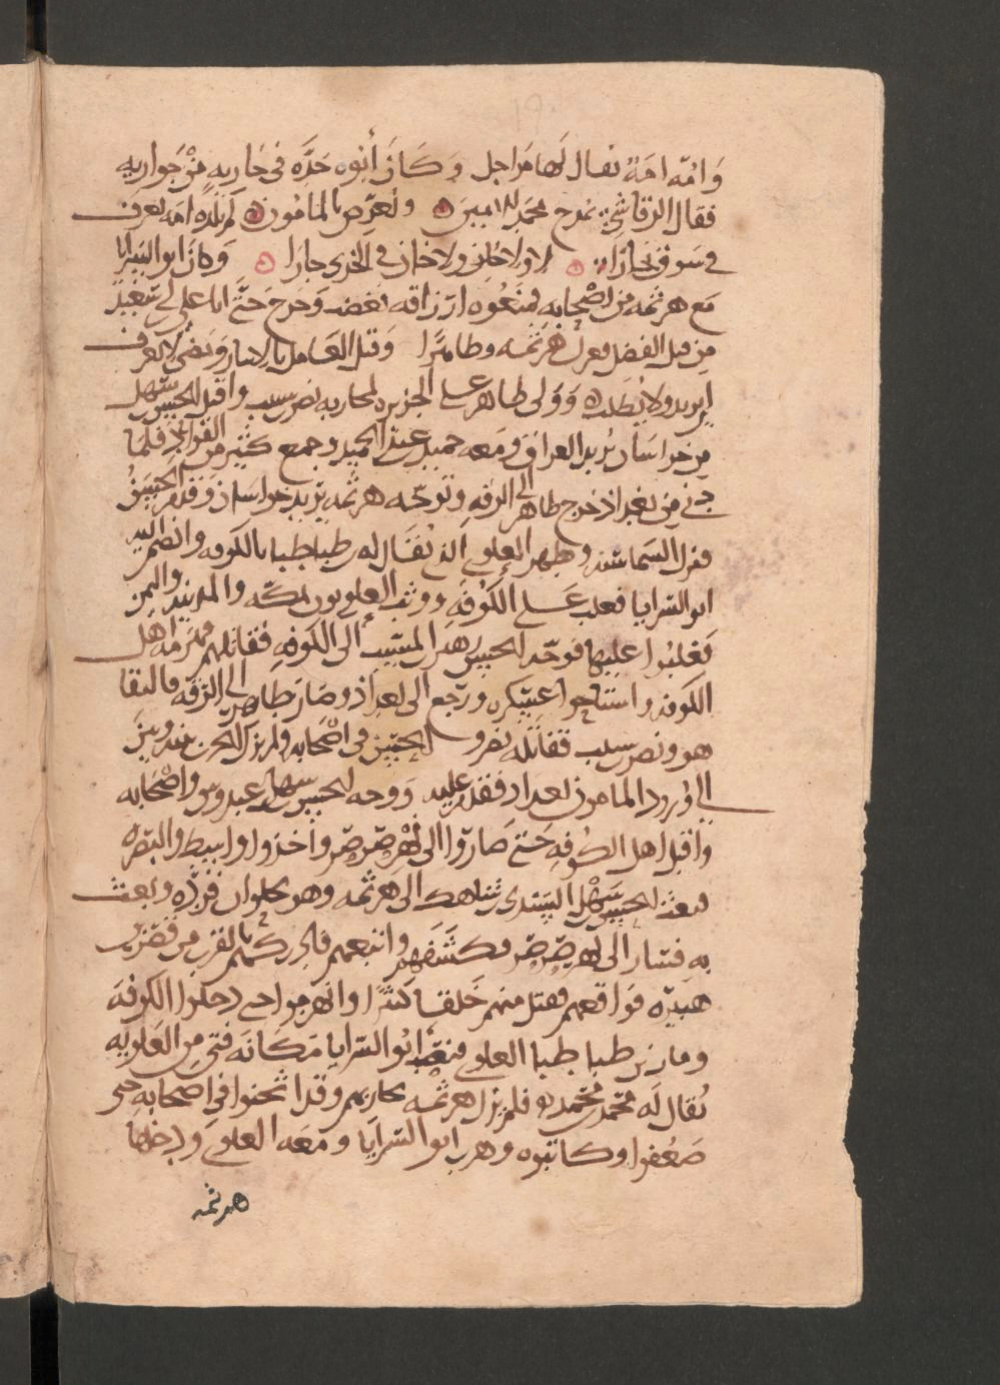 وامه امة يقال لها مراجل وكان أبوه حده في جارية من جواريه
فقال الرقاشي يمدح محمد الامين ويعرض بالمامون لم تلده امة تعرف
في سوق تجارا لا ولا خان ولا خان في الخزي جارا وكان ابو السرايا
مع هرثمه من اصحابه فمنعوه ارزاقه فغضب وخرج حتى اتا على بن سعيد
من قبل الفضل فعزل هرثمه وطاهرا وقتل العامل بالانبار ومضى لا يعرف
اين يريد ولا يطلب وولى طاهر على الجزيره لمحاربه نصر بن شبيب واقبل الحسن بن سهل
من خراسان يريد العراق ومعه حميد بن عبد الحميد وجمع كثير من القواد فلما
دني من بغداذ خرج طاهر الى الرقه وتوجه هرثمه يريد خراسان وقدم الحسن
فنزل الشماسيه وظهر العلوي الذي يقال له بن طباطبا بالكوفه وانضم اليه
ابو السرايا فغلب على الكوفه ووثب العلويون بمكه والمدينه واليمن
فغلبوا عليها فوجه الحسن زهير بن المسيب الى الكوفه فقاتلهم فهزمه اهل
الكوفه واستباحوا عسكره ورجع الى بغداذ وصار طاهر الى الرقه فالتقا
هو ونصر بن شبيب فقاتله نصر في اصحابه ولم يزل الحرب بينه وبين
الى ورود المامون بغداد فقدم عليه ووجه الحسن بن سهل عبدوس واصحابه
واقبل اهل الكوفه حتى صاروا الى نهر صرصر واخذوا واسط والبصره
فبعث الحسن بن سهل السندي بن شاهك الى هرثمه وهو بحلوان فرده وبعث
به فسار الى نهر صرصر فكشفهم واتبعهم فادركهم بالقرب من قصر بن
هبيره فواقعهم فقتل منهم خلقا كثيرا وانهزموا حتى دخلوا الكوفه
ومات بن طباطبا العلوي فنصب ابو السرايا مكانه فتى من العلويه
يقال له محمد بن محمد فلم يزل هرثمه يحاربهم وقد اثخنوا في اصحابه حتى
ضعفوا وكاتبوه وهرب ابو السرايا ومعه العلوي ودخلها
هرثمه